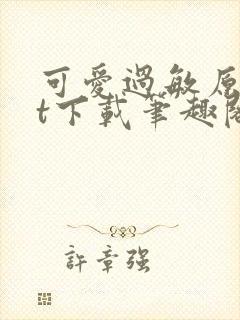 可愛過敏原
t下載筆趣閣
許章強